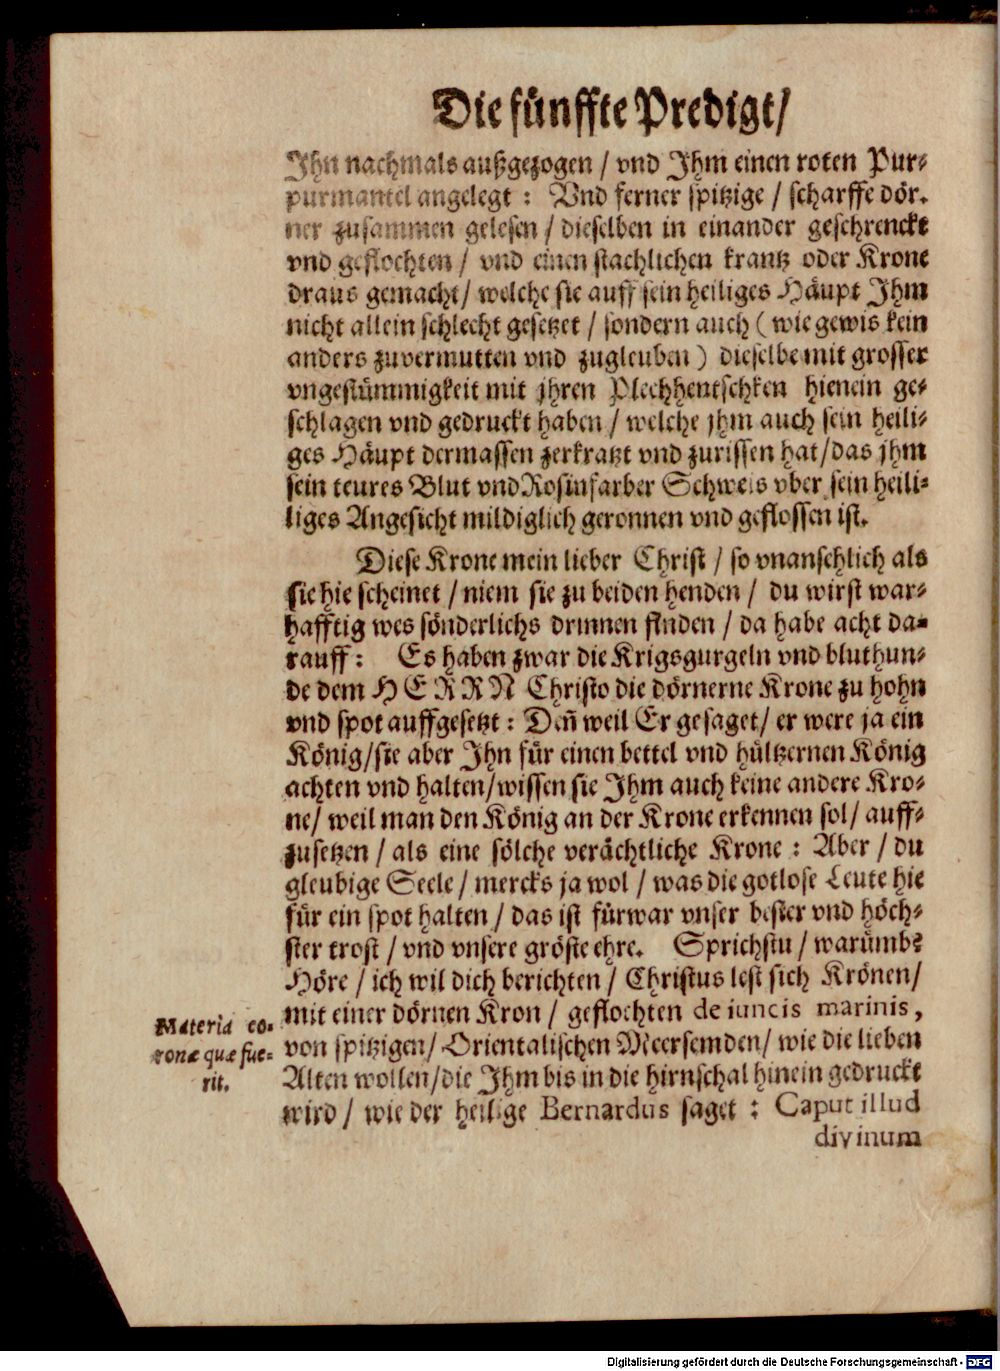 Die fünffte Predigt/
Ihn nachmals außgezogen / vnd Ihm einen roten Pur-
purmantel angelegt : Vnd ferner spitzige / scharffe dör-
ner zusammen gelesen / dieselben in einander geschrenckt
vnd geflochten / vnd einen stachlichen krantz oder Krone
draus gemacht / welche sie auff sein heiliges Häupt Ihm
nicht allein schlecht gesetzet / sondern auch ( wie gewis kein
anders zuvermutten vnd zugleuben ) dieselbe mit grosser
vngestümmigkeit mit jhren Plechhentschken hienein ge-
schlagen vnd gedruckt haben / welche jhm auch sein heili-
ges Häupt dermassen zerkratzt vnd zurissen hat / das jhm
sein teures Blut vnd Rosinfarber Schweis vber sein heili-
liges Angesicht mildiglich geronnen vnd geflossen ist.
Diese Krone mein lieber Christ / so vnansehlich als
sie hie scheinet / niem sie zu beiden henden / du wirst war-
hafftig wes sönderlichs drinnen finden / da habe acht da-
rauff : Es haben zwar die Krigsgurgeln vnd bluthun-
de dem HERRN Christo die dörnerne Krone zu hohn
vnd spot auffgesetzt : Deñ weil Er gesaget / er were ja ein
König / sie aber Ihn für einen bettel vnd hültzernen König
achten vnd halten / wissen sie Ihm auch keine andere Kro-
ne / weil man den König an der Krone erkennen sol / auff-
zusetzen / als eine sölche verächtliche Krone : Aber / du
gleubige Seele / mercks ja wol / was die gotlose Leute hie
für ein spot halten / das ist fürwar vnser bester vnd höch-
ster trost / vnd vnsere gröste ehre. Sprichstu / warümb?
Höre / ich wil dich berichten / Christus lest sich Krönen /
mit einer dörnen Kron / geflochten de iuncis marinis,
von spitzigen / Orientalischen Meersemden / wie die lieben
Alten wollen / die Ihm bis in die hirnschal hinein gedruckt
wird / wie der heilige Bernardus saget : Caput illud
divinum
Materia co-
ronæ quæ fue-
rit.
Digitalisierung gefördert durch die Deutsche Forschungsgemeinschaft - DFG